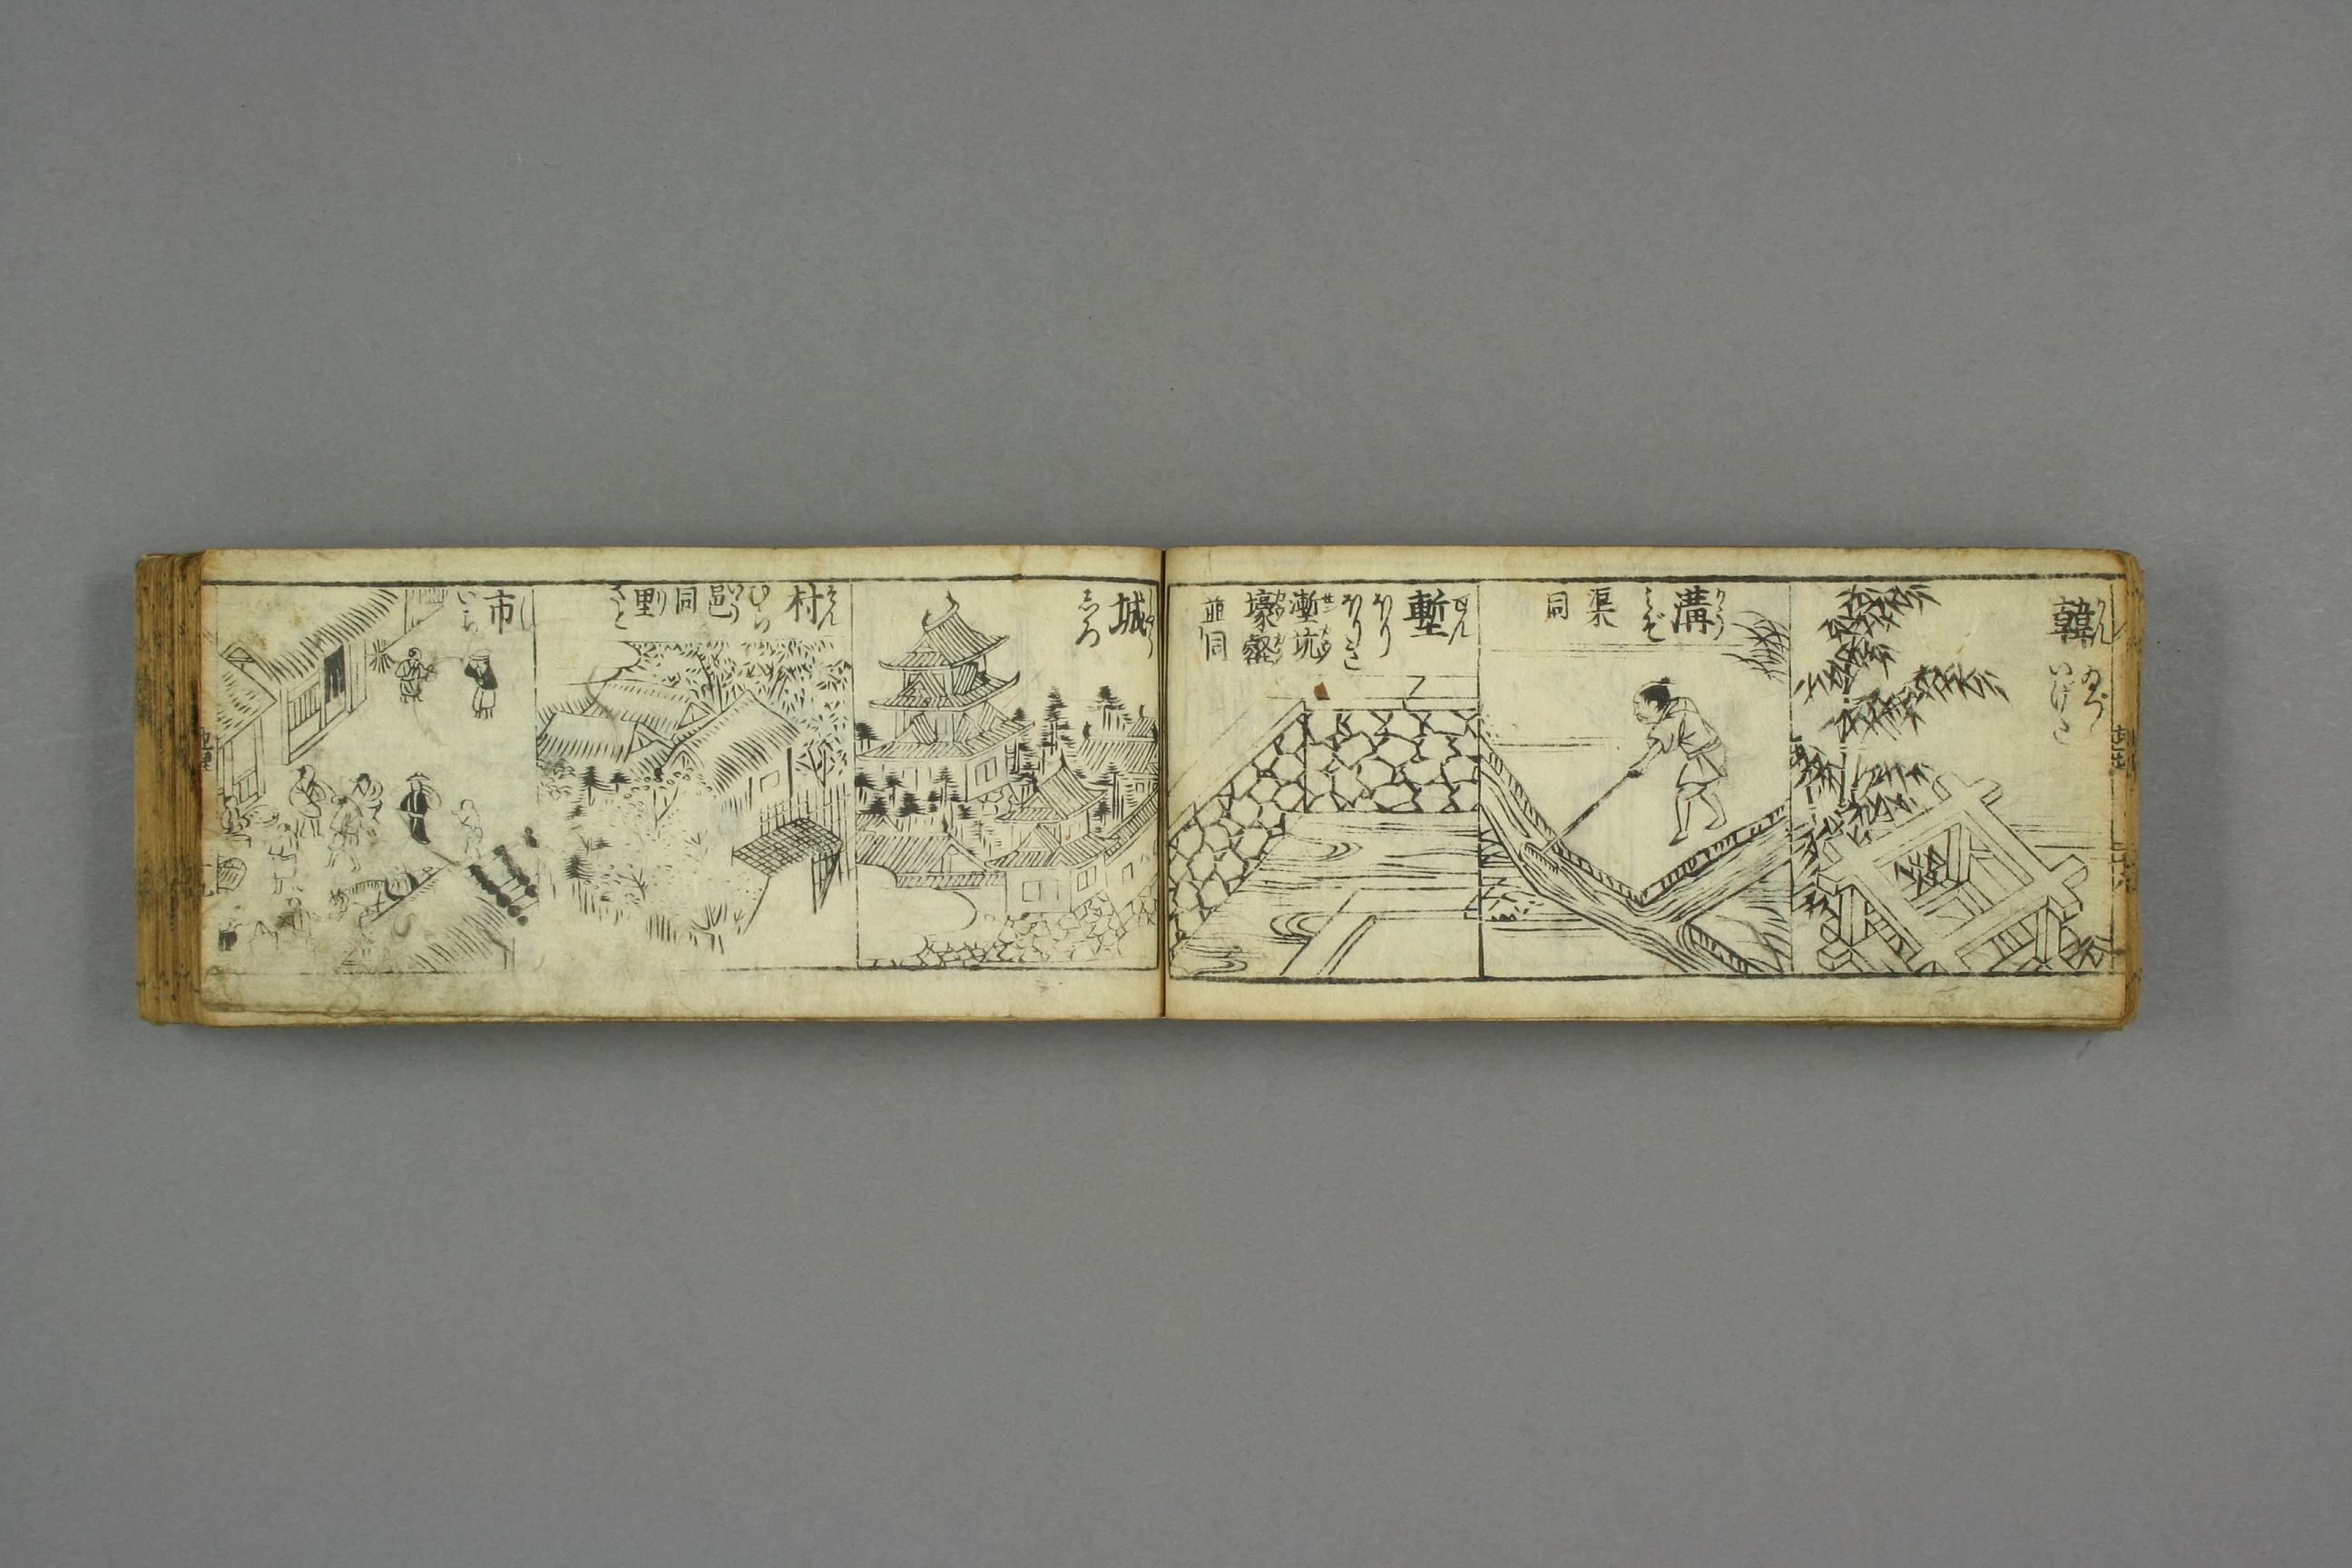 韓
かん
いげた
溝
こう
みぞ
渠
同
塹
ざん
ほり
ほりき
塹坑
壕壑
並同
城
しろ
村
そん
むら
邑
いう
同
里
り
さと
市
し
いち